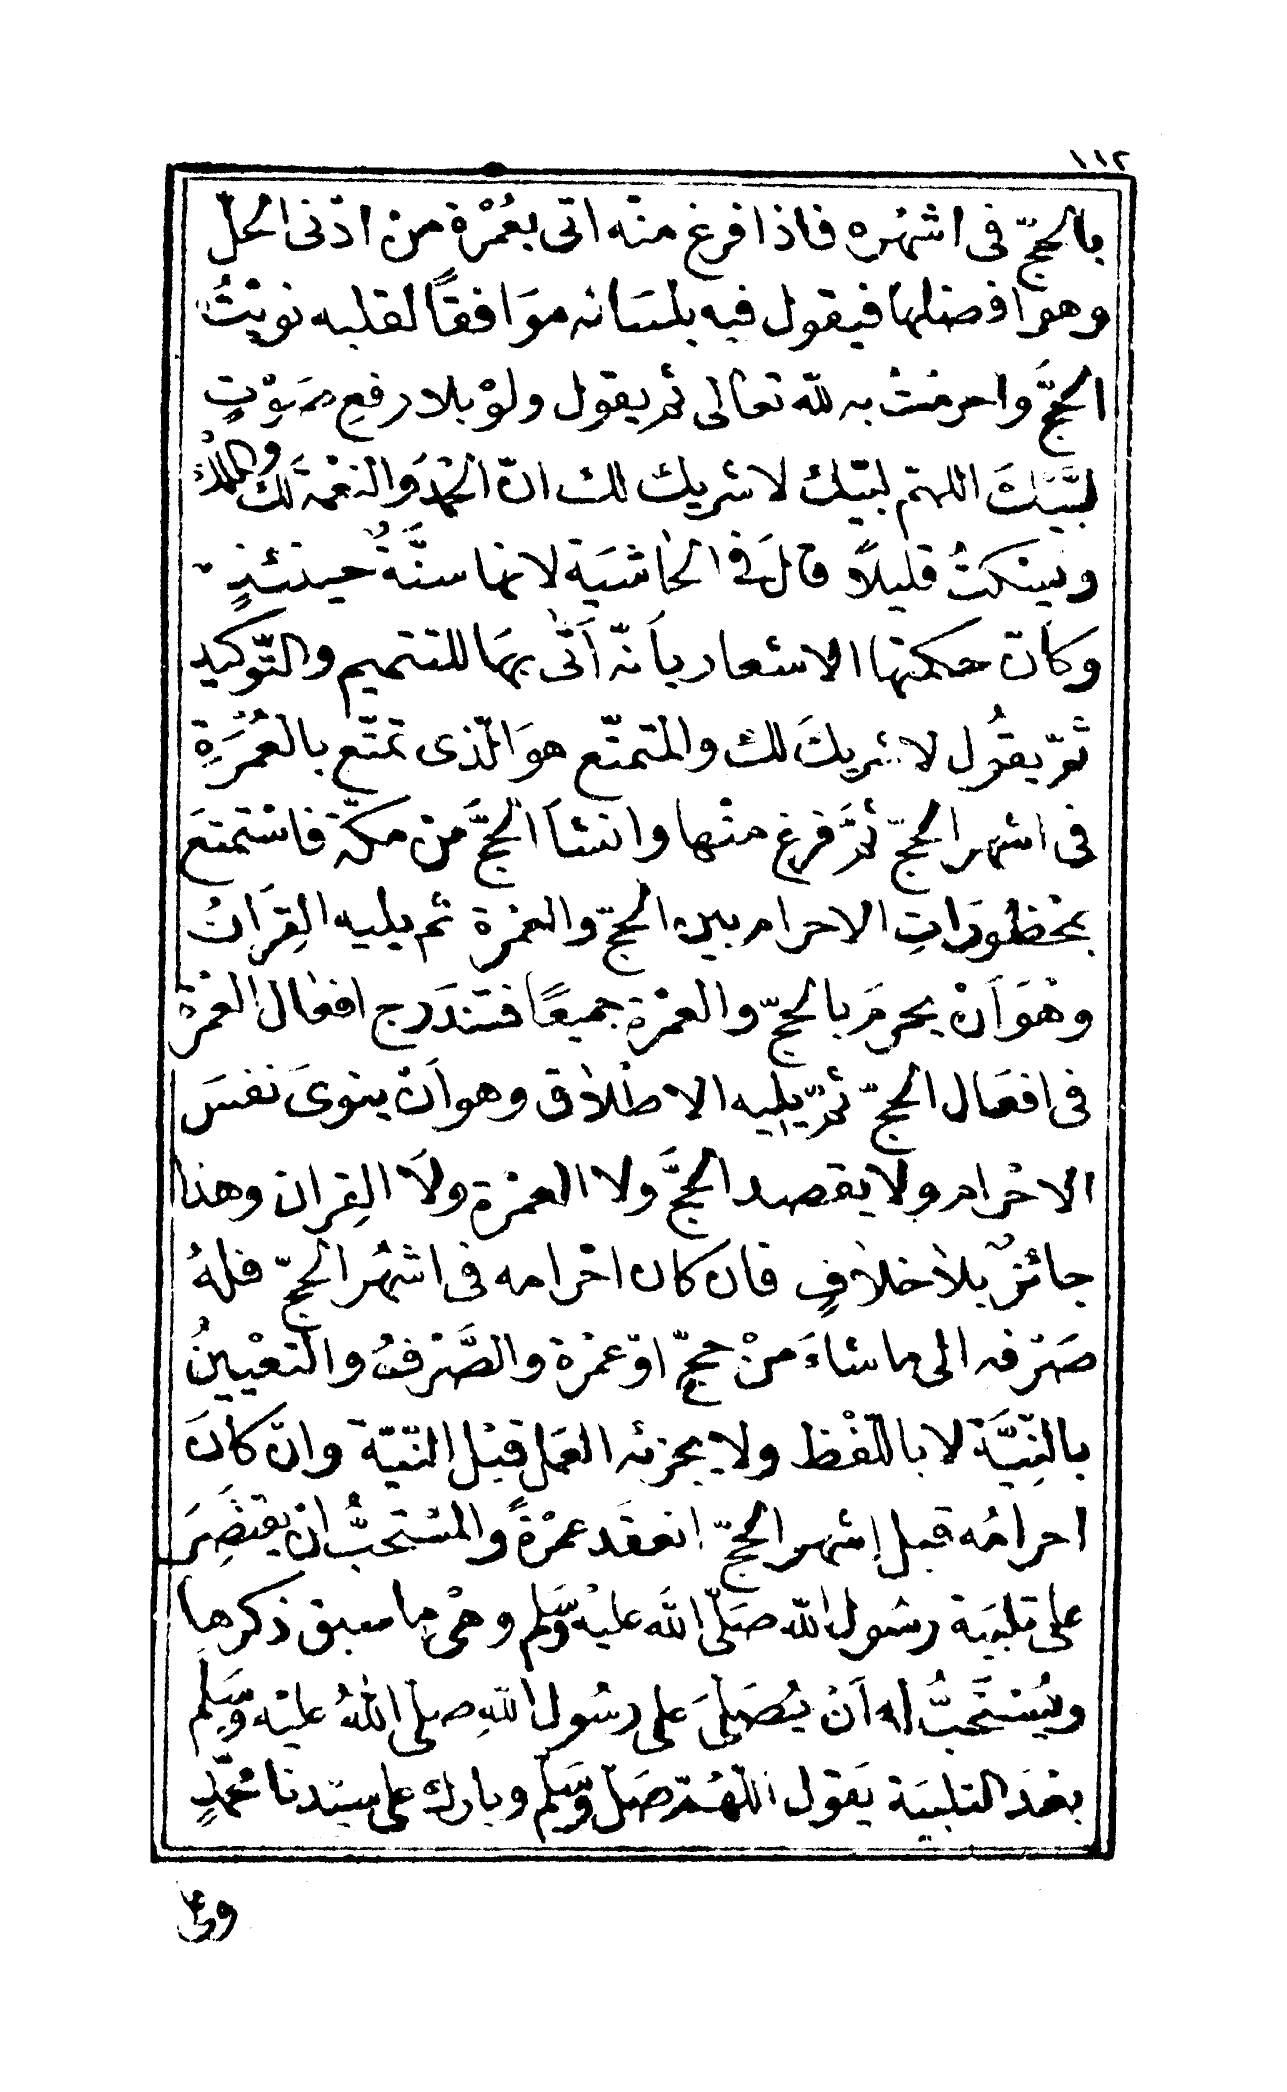 ١١٢
بالحجّ فى اشهُره فاذا فرغ منه اتى بعُمْرة من ادْنى الحلّ
وهوَا فضلها فيقول فيه بلسَانه موَافقاً لقلبه نويْتُ
الحجَّ واحرمْتُ به للّه تعالى ثم يقول ولوْ بلا رفعِ صَوْتٍ
لبَّيْكَ اللهم لبّيك لا شريك لك انّ الحْمدَ والنعْمة لكَ والملْك
ويسْكتُ قليلاً قالَ فى الحاشيَة لانها سنَّةٌ حينئذٍ
وكانّ حكمتها الاشعار باَنّه اَتَى بهَا للتتميم والتّوكيد
ثمّ يقُول لا شريكَ لك والمتمتّع هوَ الّذى تمتّع بالعُمْرَةِ
فى اشهر الحجّ ثمَّ فرغ منْها وانشأَ الحجَّ منْ مكّة فاسْتمتعَ
بمحْظورَاتِ الاحرام بين الحجّ والعمْرة ثم يليه القِرَانُ
وهْوَ اَنْ يحرمَ بالحجّ والعمْرة جميعًا فتندَرج افعَال العمْرة
فى افعَال الحجّ ثمّ يليه الاطْلاق وهو اَنْ ينوىَ نفسَ
الاحْرام ولا يقصد الحجَّ ولا العمْرة ولَا القِران وهذا
جائزٌ بلا خلافٍ فان كان احْرامه فى اشهُر الحجّ فلهُ
صَرْفه الى ما شاءَ منْ حجّ اوْ عمْرة والصَّرْفُ والتعْيينُ
بالنِيَّة لا باللّفْظ ولا يجزئه العمَل قبْل النّيّة وانْ كانَ
احرامُه قبل اشهر الحجّ انعقَد عمْرةً والمسْتحبُّ انْ يقتصِرَ
على تلبيَة رسُول اللّه صَلّى اللّه عليْه وسَّلم وهْى ما سبق ذكرها
ويُسْتَحَبُّ له اَنْ يُصَلىَ على رسُول اللّهِ صلى اللّهُ عليْه وسَلم
بعْدَ التلبيَة يَقول اللّهُمّ صَلّ وسَلّم وبارك على سيّدنا محمّدٍ
وعلى